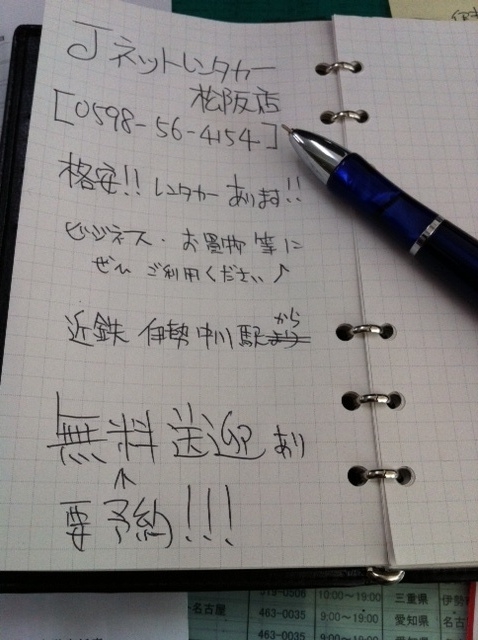 Jネットレンタカー
松阪店
[0598-56-4154]
格安!! レンタカー あります!!
ビジネス・お買物 等に
ぜひ ご利用ください♪
近鉄 伊勢中川駅から
無料送迎あり
↑
要予約!!!
519-0506 10:00～19:00 三重県 伊勢
名古屋 463-0035 9:00～19:00 愛知県 名古
463-0035 9:00～19:00 愛知県